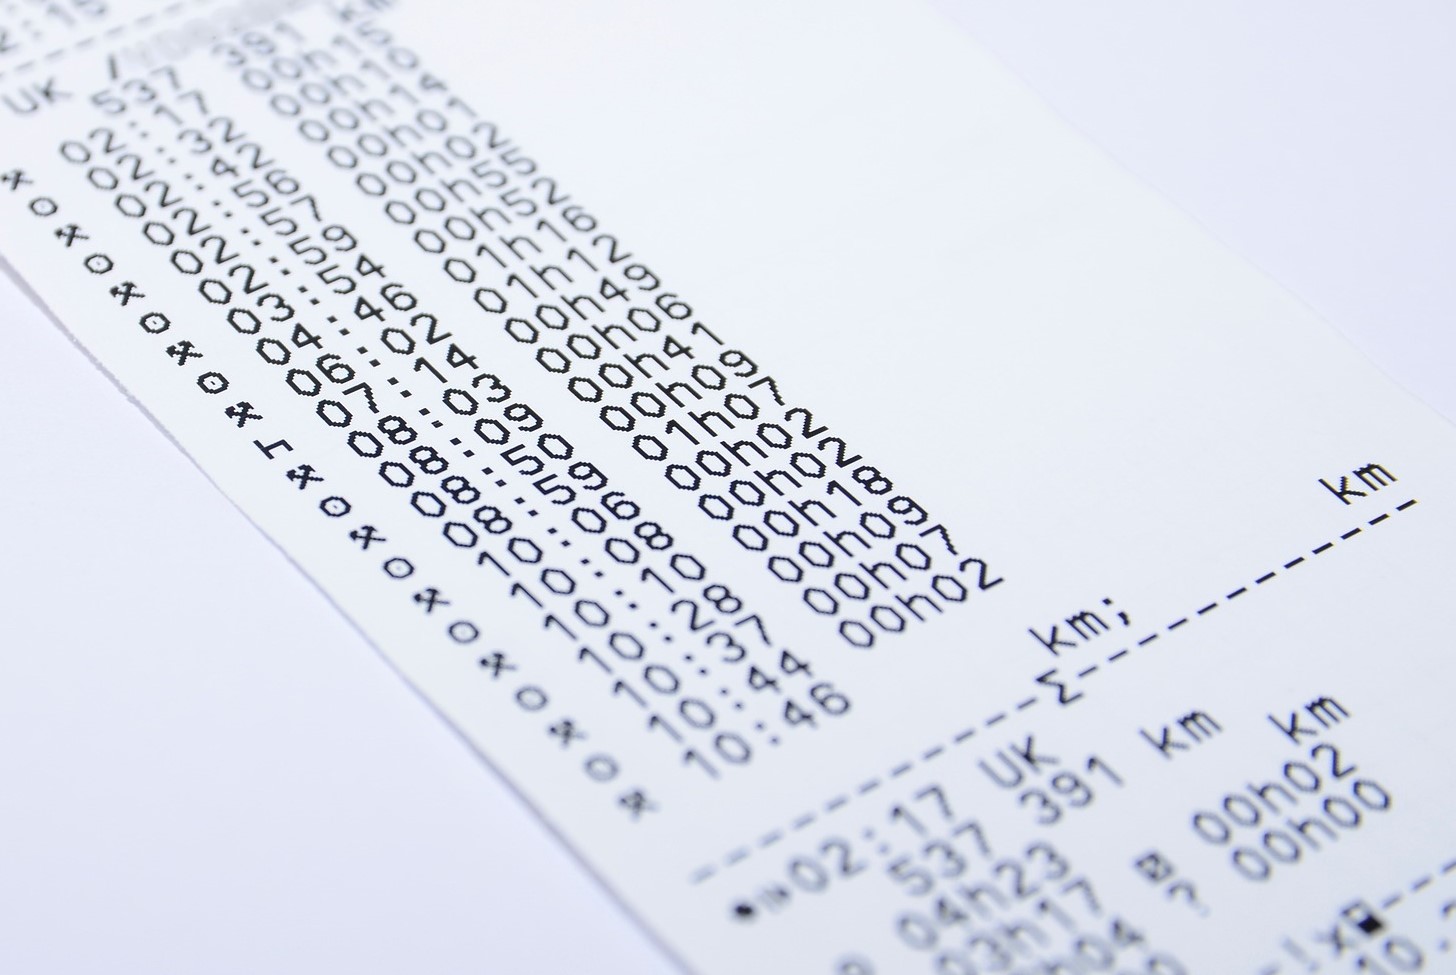 UK /
537 391 km
02:17 00h15
02:32 00h10
02:42 00h14
02:56 00h01
02:57 00h02
02:59 00h55
03:54 00h52
04:46 01h16
06:02 01h12
07:14 00h49
08:03 00h06
08:09 00h41
08:50 00h09
08:59 01h07
10:06 00h02
10:08 00h02
10:10 00h18
10:28 00h09
10:37 00h07
10:44 00h02
10:46
km; km
-----------Σ-----------
02:17 UK
537 391 km
04h23 km
03h17 00h02
h04 ? 00h00